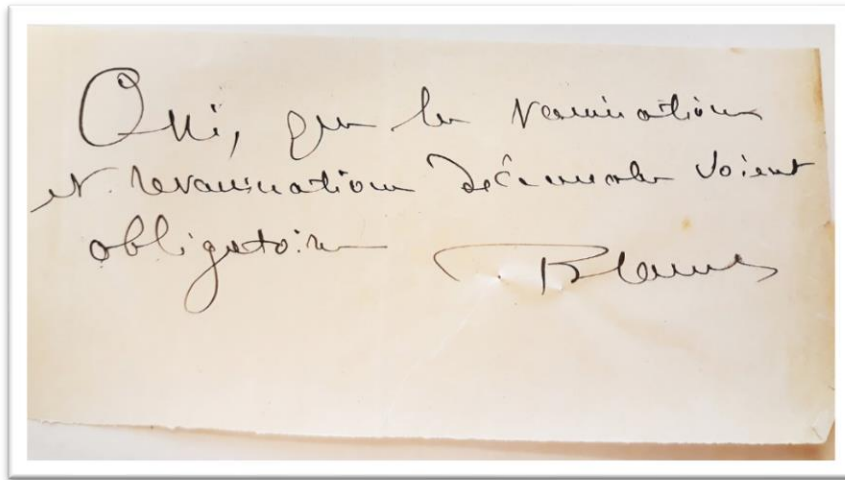 Oui, que les vaccinations
et revaccinations décennales soient
obligatoires